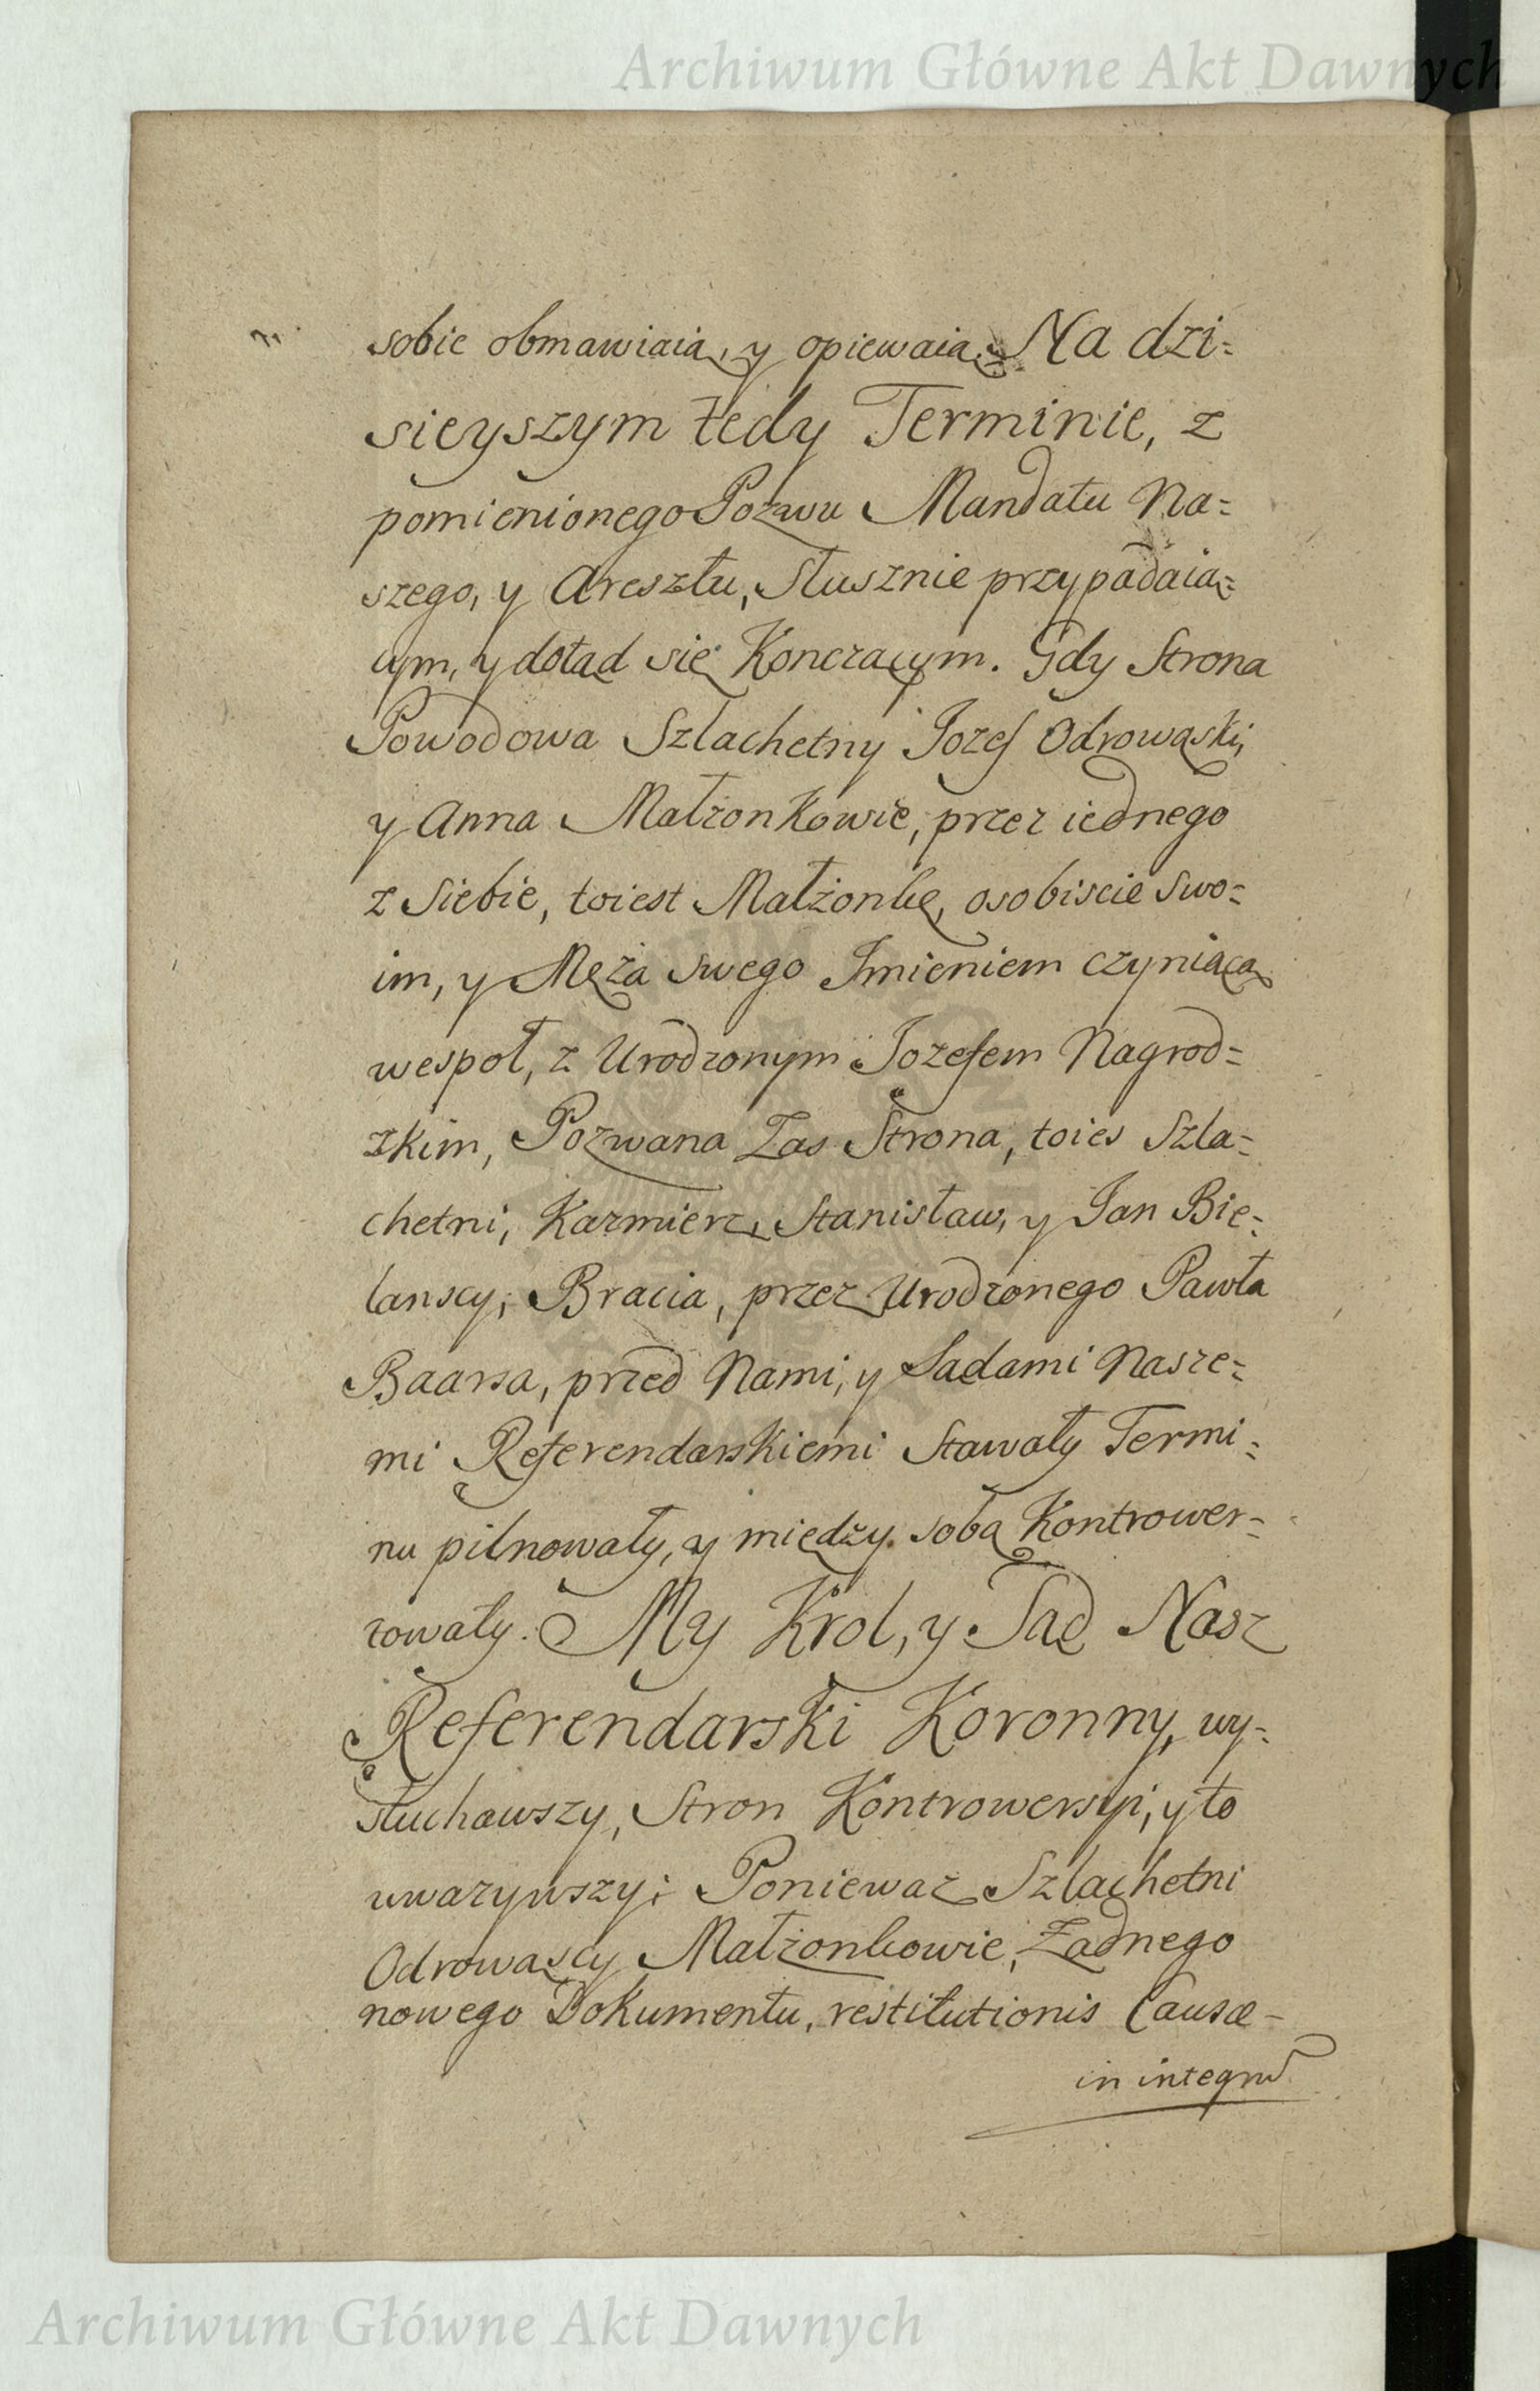 Archiwum Główne Akt Dawnych
sobie obmawiaią, y opiewaią. Na dzi=
sieyszym tedy Terminie, z
pomienionego Pozwu Mandatu Na=
szego, y Aresztu, Słusznie przypadaią=
cym, y dotąd się Konczącym. Gdy Strona
Powodowa Szlachetny Jozef Odrowąski,
y Anna Małzonkowie, przez iednego
z Siebie, toiest Małżonkę, osobiscie Swo=
im, y Męża Swego Imieniem czyniącą
wespoł, z Urodzonym Jozefem Nagrod=
zkim, Pozwana Zas Strona, toies Szla=
chetni, Kazmierz, Stanisław, y Jan Bie=
lanscy, Bracia, przez Urodzonego Pawła
Baarsa, przed Nami, y Sądami Nasze=
mi Referendarskiemi Stawały Termi=
nu pilnowały, y między sobą Kontrower=
towały. My Krol, y Sąd Nasz
Referendarski Koronny, wy=
słuchawszy, Stron Kontrowersyi, y to
uwazywszy; Poniewaz Szlachetni
Odrowąscy Małzonkowie, Żadnego
nowego Dokumentu, restitutionis Causæ=
in integrũ
Archiwum Główne Akt Dawnych